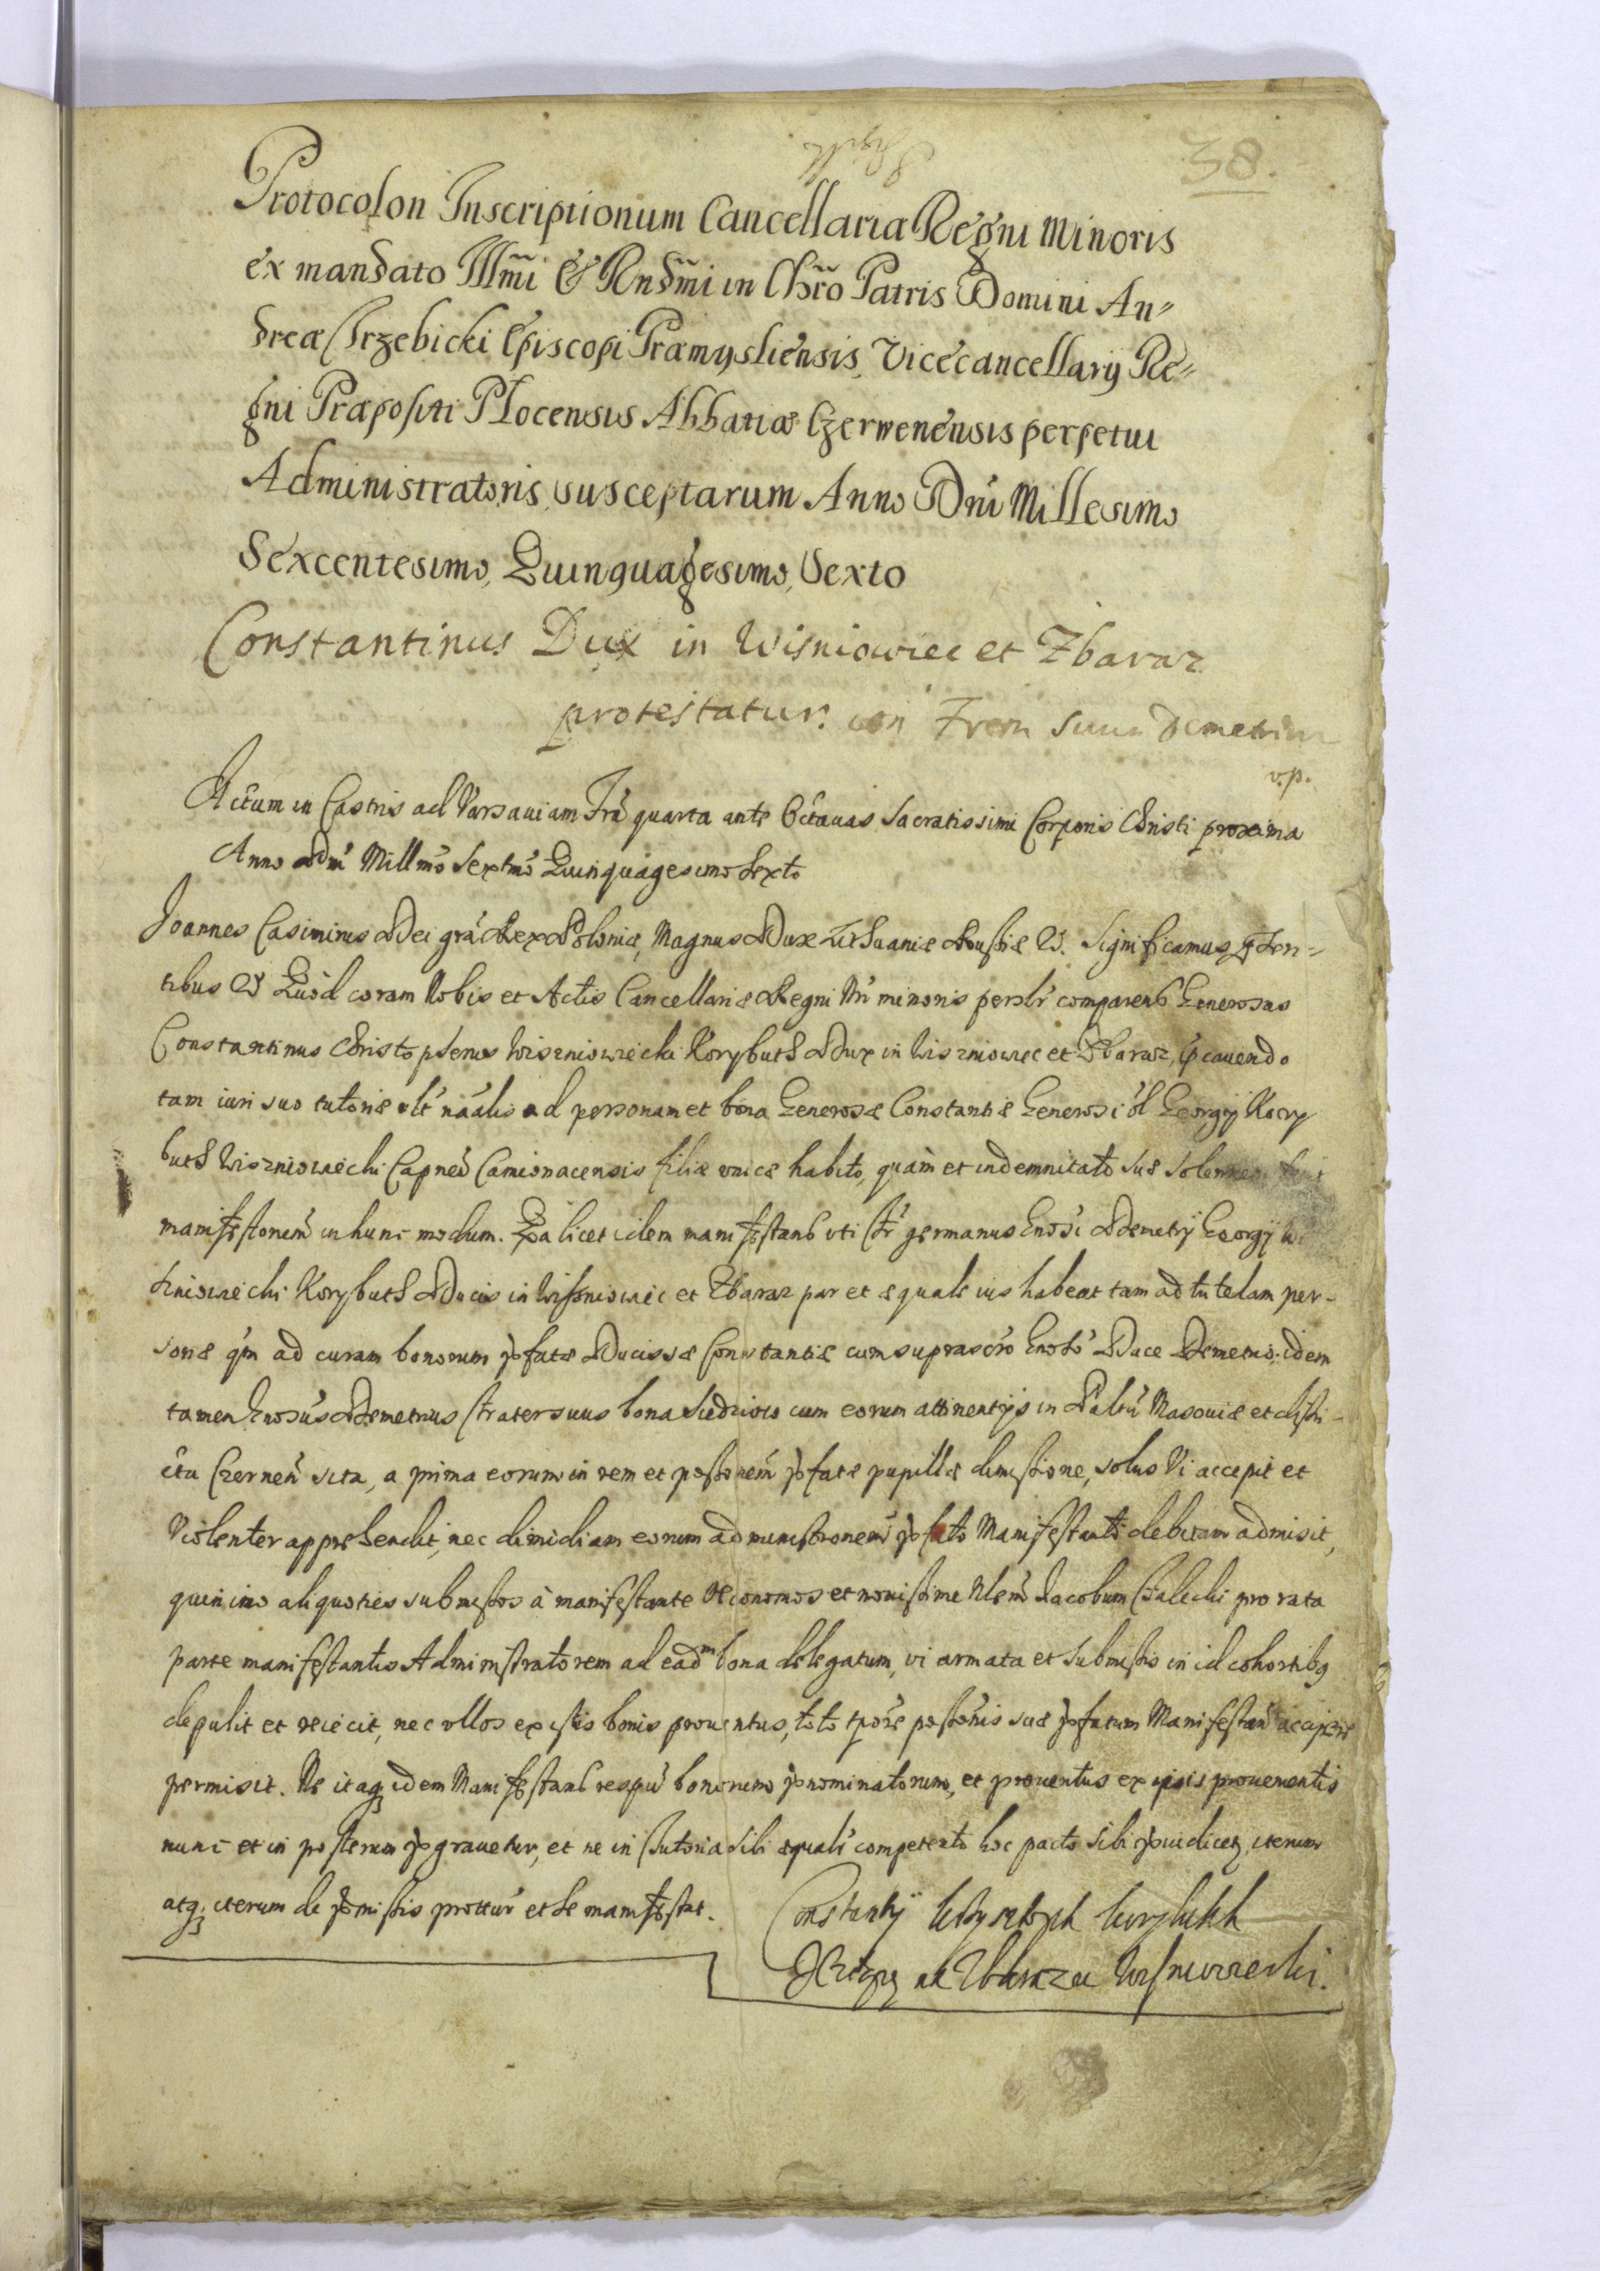 38.
Protocolon Inscriptionum Cancellariæ Regni Minoris
ex mandato Illm̃i & Rndm̃i in Chr̃o Patris Domini An-
dreæ Trzebicki Episcopi Præmysliensis, Vicecancellarij Re-
gni Præpositi Plocensis Abbatiæ Czerwenensis perpetui
Administratoris, susceptarum Anno Dñi Millesimo
Sexcentesimo, Quinquagesimo, Sexto
Constantinus Dux in Wisniowiec et Zbaraz
protestatur. con Frem suum Demetrium
v.p.
Actum in Castris ad Varsaviam Fra quarta ante Octavas Sacratissimi Corporis Christi proxima
Anno Dni Millmo Sextmo Quinquagesimo Sexto
Joannes Casimirus Dei gra Rex Poloniæ, Magnus Dux Lithuaniæ Russiæ &. Significamus pnten-
tibus & Quod coram Nobis et Actis Cancellariæ Regni Nri minoris persolr comparens Generosus
Constantinus Christophorus Wiszniowiecki Korybuth Dux in Wiszniowiec et Zbaraz, præcavendo
tam iuri suo tutoriæ olt naali ad personam et bona Generosæ Constantiæ Generosi ol Georgij Kory
buth Wiszniowiecki Capnei Camionacensis filiæ unicæ habito, quam et indemnitati suæ solennem
manifestonem in hunc modum. Quia licet idem manifestans uti fr germanus Gnosi Demetrij Georgij Wi
szniowiecki Korybuth Ducis in Wiszniowiec et Zbaraz par et æquale ius habeat tam ad tutelam per-
sonæ qm ad curam bonorum præfatæ Ducissæ Constantiæ cum suprascro Gnoso Duce Demetrio, idem
tamen Gnosus Demetrius frater suus bona cum eorum attinentijs in Paltu Masoviæ et distri-
ctu Czernen sita, a prima eorum in rem et possonem præfatæ pupillæ dimissione, solus Vi accepit et
Violenter apprehendit, nec dimidiam eorum administronem præfato Manifestanti debitam admisit,
quinimo aliquoties submissos à manifestante Œconomos et novissime Nlem Jacobum Chalecki pro rata
parte manifestantis Administratorem ad eadm bona delegatum, vi armata et submissis in id cohortibq
depulit et reiecit, nec ullos ex istis bonis proventus, toto tpore possonis suæ præfatum Manifestan accipere
permisit. Ne itaq idem Manifestans respu bonorum prænominatorum, et proventus ex ipsis provenientis
nunc et in posterum prægravetur, et ne in tutoria sibi æquali competenti hoc pacto sibi præiudicet, iterum
atq; iterum de præmissis prottur et se manifestat.
Constanty Krzysztoph Korybuth
Xiążę na Zbarazu Wisniowiecki.